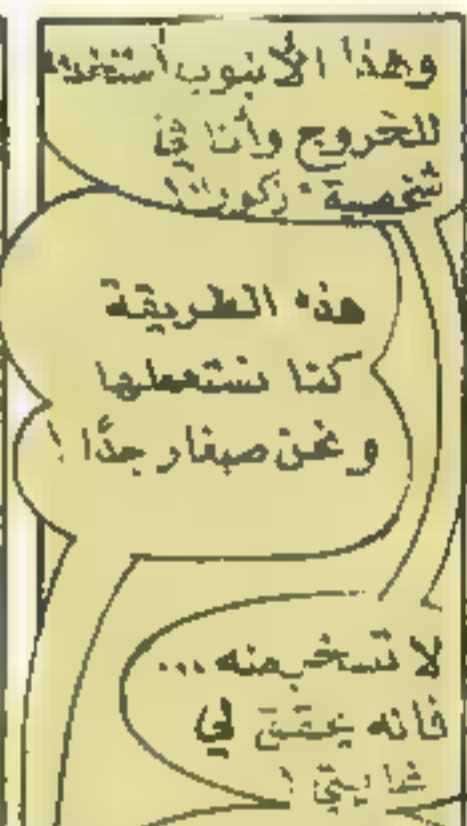 وهذا الأنبوب أستخدمه
للخروج وأنا في
شخصية "زكورانا"
هذه الطريقة
كنا نستعملها
ونحن صغار جدًا !
لا تسخر منه ...
فانه يحقق لي
غايتي !